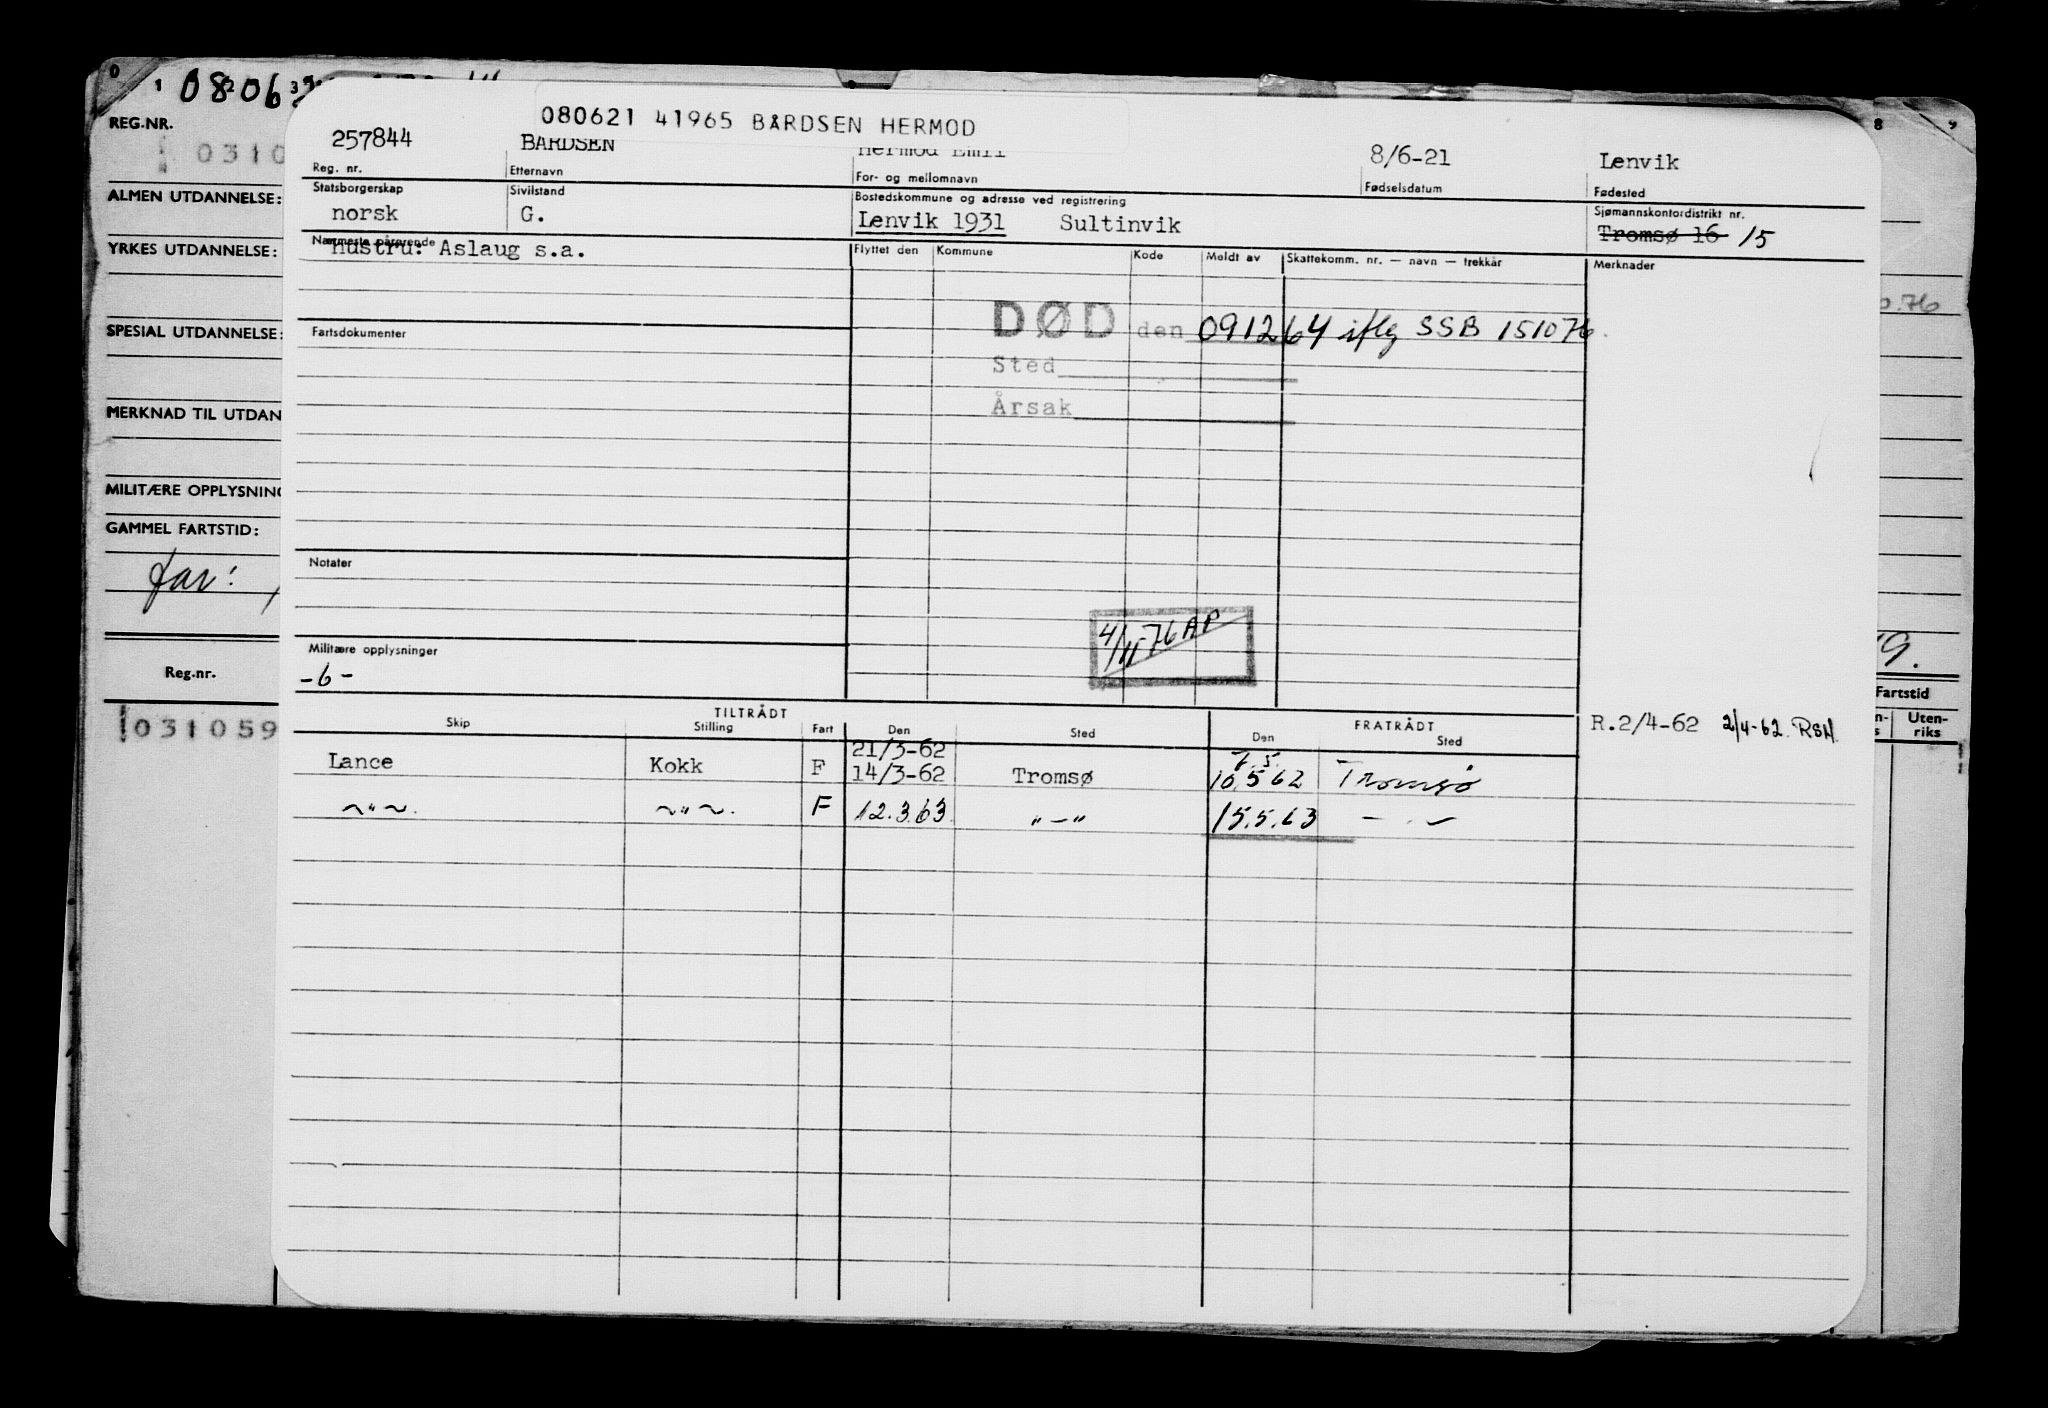 0 1 0806 3
REG.NR.
0310
ALMEN UTDANNELSE:
YRKES UTDANNELSE:
SPESIAL UTDANNELSE:
MERKNAD TIL UTDAN
MILITÆRE OPPLYSNING
GAMMEL FARTSTID:
far:
Reg.nr.
031059
080621 41965 BÅRDSEN HERMOD
257844 BÅRDSEN Hermod Emil 8/6-21 Lenvik
Reg. nr. Etternavn For- og mellomnavn Fødselsdatum Fødested
Statsborgerskap Sivilstand Bostedskommune og adresse ved registrering Sjømannskontordistrikt nr.
norsk G. Lenvik 1931 Sultinvik Tromsø 16 15
Nærmeste pårørende Flyttet den Kommune Kode Meldt av Skattekomm. nr. — navn — trekkår Merknader
hustru: Aslaug s.a.
Fartsdokumenter
DØD den 091264 iflg SSB 151076.
Sted
Årsak
Notater
4/11-76 AP
Militære opplysninger
-6-
TILTRÅDT FRATRÅDT
Skip Stilling Fart Den Sted Den Sted
R.2/4-62 2/4-62. RSH.
21/3-62
Lance Kokk F 14/3-62 Tromsø 10.5 62 Tromsø
~"~. ~"~. F 12.3.63. "—" 15.5.63 — . —
8 9
0.76
9.
Fartstid
n- Uten-
s riks